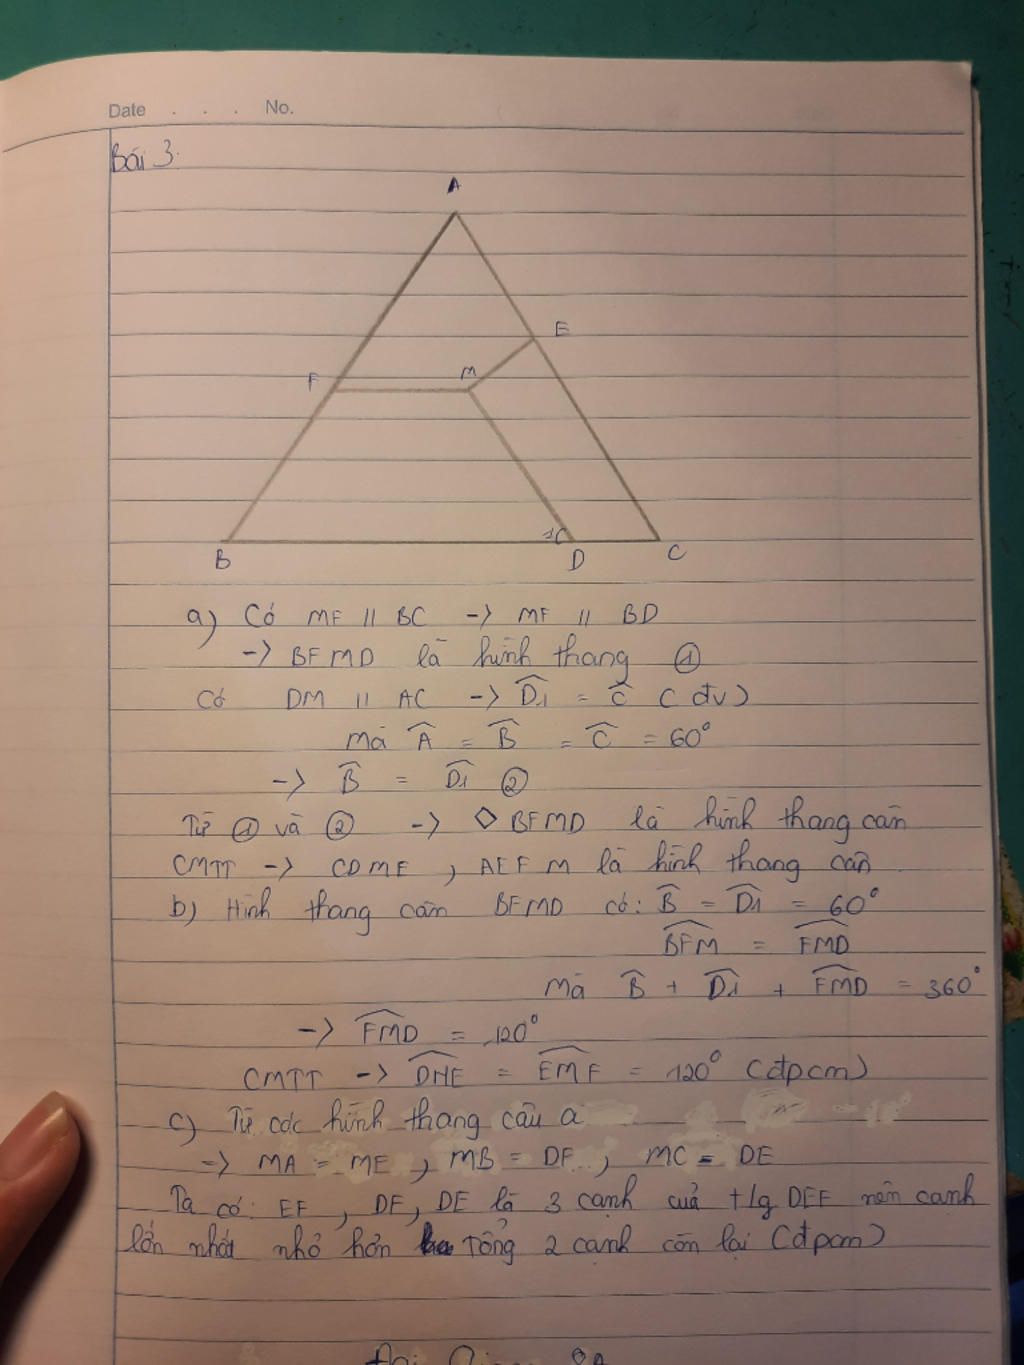 Date . . . No.
Bài 3.
A
E
F
M
1
B
D
C
a) Có MF // BC -> MF // BD
-> BFMD là hình thang ①
Có DM // AC -> D̂1 = Ĉ (đv)
Mà Â = B̂ = Ĉ = 60°
-> B̂ = D̂1 ②
Từ ① và ② -> ◇ BFMD là hình thang cân
CMTT -> CDME , AEFM là hình thang cân
b) Hình thang cân BFMD có: B̂ = D̂1 = 60°
BFM = FMD
Mà B̂ + D̂1 + FMD = 360°
-> FMD = 120°
CMTT -> DME = EMF = 120° (đpcm)
c) Từ các hình thang câu a
=> MA = ME , MB = DF , MC = DE
Ta có: EF , DF, DE là 3 cạnh cuả +lg DEF nên cạnh
lớn nhất nhỏ hơn tổng 2 cạnh còn lại (đpcm)